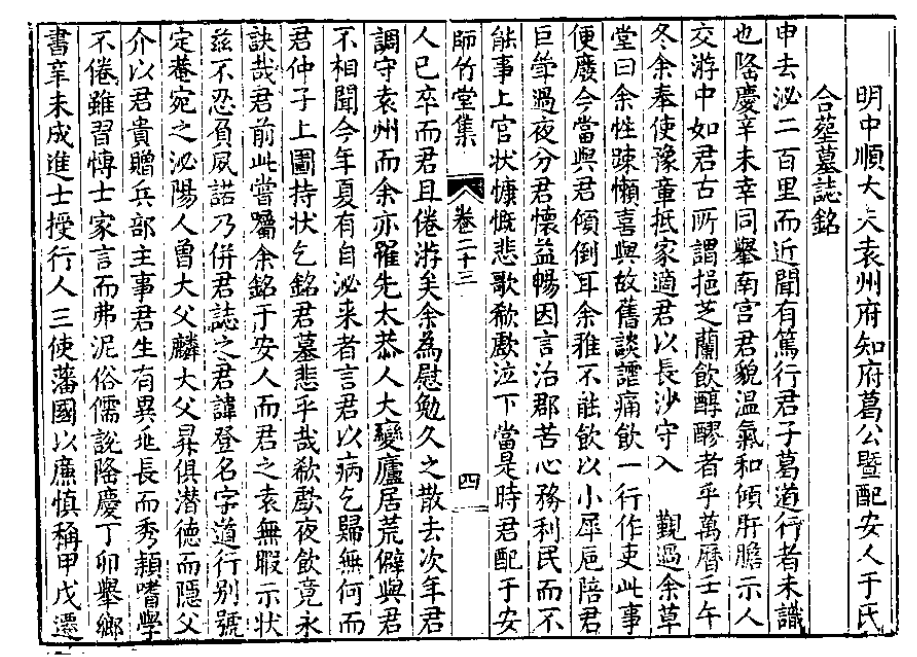 明中順大夫袁州府知府葛公暨配安人于氏
合塟墓誌銘
申去泌二百里而近聞有篤行君子葛道行者未識
也隆慶辛未幸同舉南宮君貌溫氣和傾肝膽示人
交游中如君古所謂挹芝蘭飲醇醪者乎萬曆壬午
冬余奉使豫章抵家適君以長沙守入 覲過余草
堂曰余性踈懶喜與故舊談謔痛飲一行作吏此事
便廢今當與君傾倒耳余雅不能飲以小犀巵陪君
巨觥過夜分君懷益暢因言治郡苦心務利民而不
能事上官状慷慨悲歌欷歔泣下當是時君配于安
師竹堂集 卷二十三 四
人已卒而君且倦游矣余為慰勉久之散去次年君
調守袁州而余亦罹先太恭人大變廬居荒僻與君
不相聞今年夏有自泌来者言君以病乞歸無何而
君仲子上圖持状乞銘君墓悲乎哉欷歔夜飲竟永
訣哉君前此嘗囑余銘于安人而君之袁無暇示状
兹不忍負夙諾乃併君誌之君諱登名字道行别號
定菴宛之泌陽人曾大父麟大父昇俱潜德而隱父
介以君貴贈兵部主事君生有異兆長而秀穎嗜學
不倦雖習博士家言而弗泥俗儒說隆慶丁卯舉鄉
書辛未成進士授行人三使藩國以廉慎稱甲戌遷